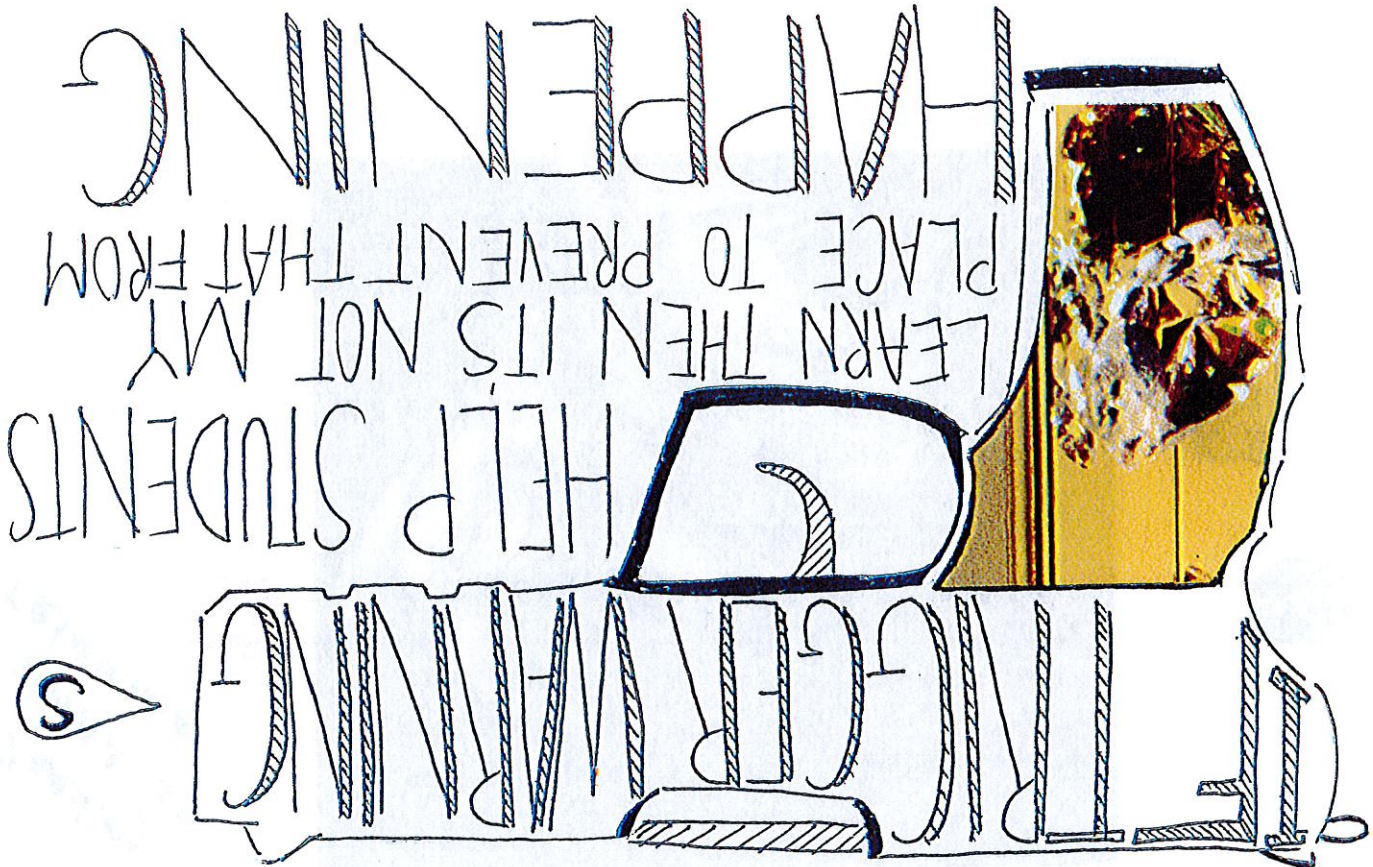 IF TRIGGER WARNINGS
HELP STUDENTS
LEARN THEN IT'S NOT MY
PLACE TO PREVENT THAT FROM
HAPPENING